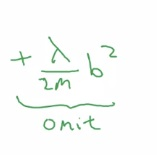 + λ/2m b²
omit